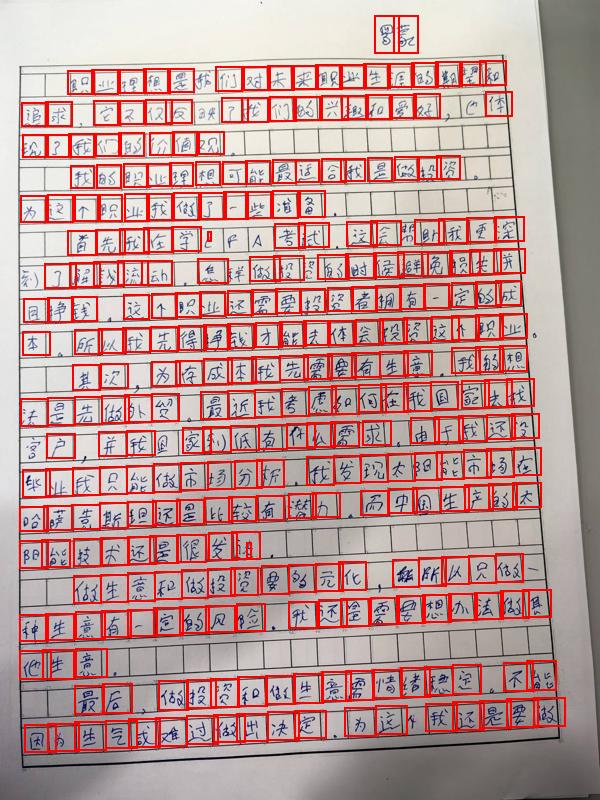 职业理想是我们对未来职业生涯的期望和
追求，它不仅反映了我们的兴趣和爱好，也体
现了我们的价值观。
我的职业理想可能最适合我是做投资。
为这个职业我做了一些准备。
首先我在学CFA考试。这会帮助我更深
刻了解钱流动。怎样做投资的时候避免损失并
且挣钱。这个职业还需要投资者拥有一定的成
本。所以我先得挣钱才能去体会投资这个职业。
其次，为存成本我先需要有生意。我的想
法是先做外贸。最近我考虑如何在我国家去找
客户，并我国家到底有什么需求。由于我还没
毕业我只能做市场分析。我发现太阳能市场在
哈萨克斯坦还是比较有潜力。而中国生产的太
阳能技术还是很发达。
做生意和做投资要多元化，所以只做一
种生意有一定的风险。我还是需要想办法做其
他生意。
最后，做投资和做生意需情绪稳定。不能
因为生气或难过做出决定。为这个我还是要做